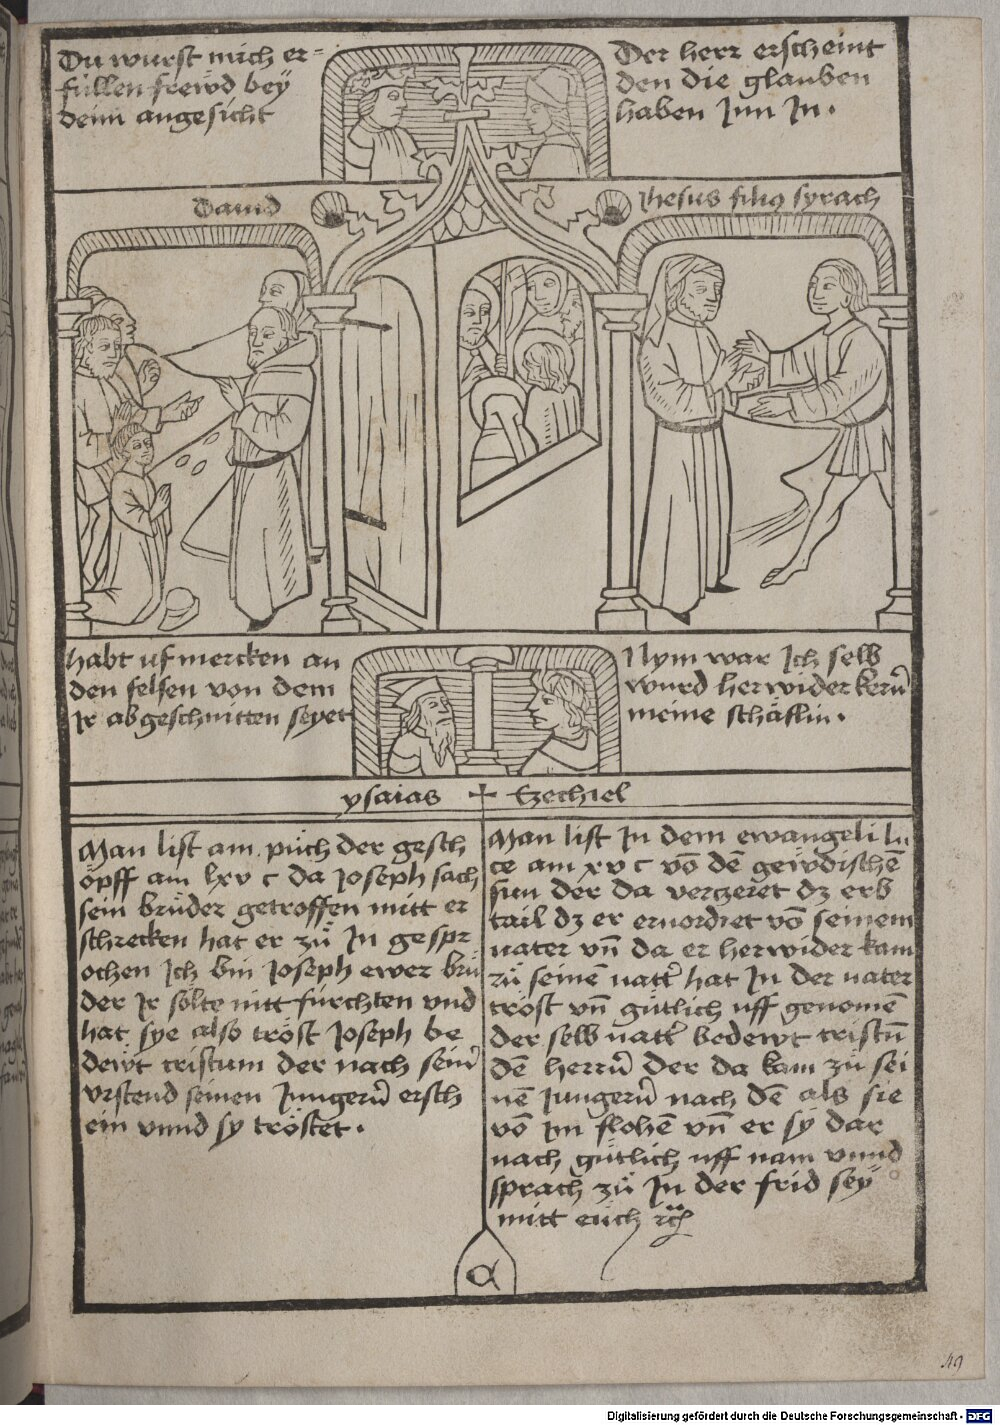 Du wurst mich er=
füllen frewd bey
denn angesicht
Der herr erscheint
den die glauben
haben Jnn Jn.
Dauid
Jhesus filiꝯ syrach
habt uf mercken an
den felsen von dem
Jr abgeschnitten seyet
Nym war Jch selb
wurd herwider kern̄
meine schäflin.
ysaias + Ezechiel
Man list am püch der gesch
öpff am lxv c da Joseph sach
sein brüder getroffen mitt er
schrecken hat er zů Jn gespr
ochen Jch bin Joseph ewer brü
der Jr sölte nitt fürchten vnd
hat sye also tröst Joseph be
dewt cristum der nach sein̄
vrstend seinen Jungern̄ ersch
ein vnnd sy tröstet.
Man list Jn dem ewangeli lu
ce am xv c vō dē gewdischē
sun der da verzeret dz erb
tail dz er eruordret vō seinem
vater vn̄ da er herwider kam
zů seinē vatt̄ hat Jn der vater
tröst vn̄ gütlich uff genomē
der selb vatt̄ bedewt cristū
dē herrn̄ der da kam zů sei
nē Jungern̄ nach dē als sie
vō Jm flohē vn̄ er sy dar
nach gütlich uff nam vnnd
sprach zů Jn der frid sey
mitt eüch ꝛc
a
49
Digitalisierung gefördert durch die Deutsche Forschungsgemeinschaft - DFG